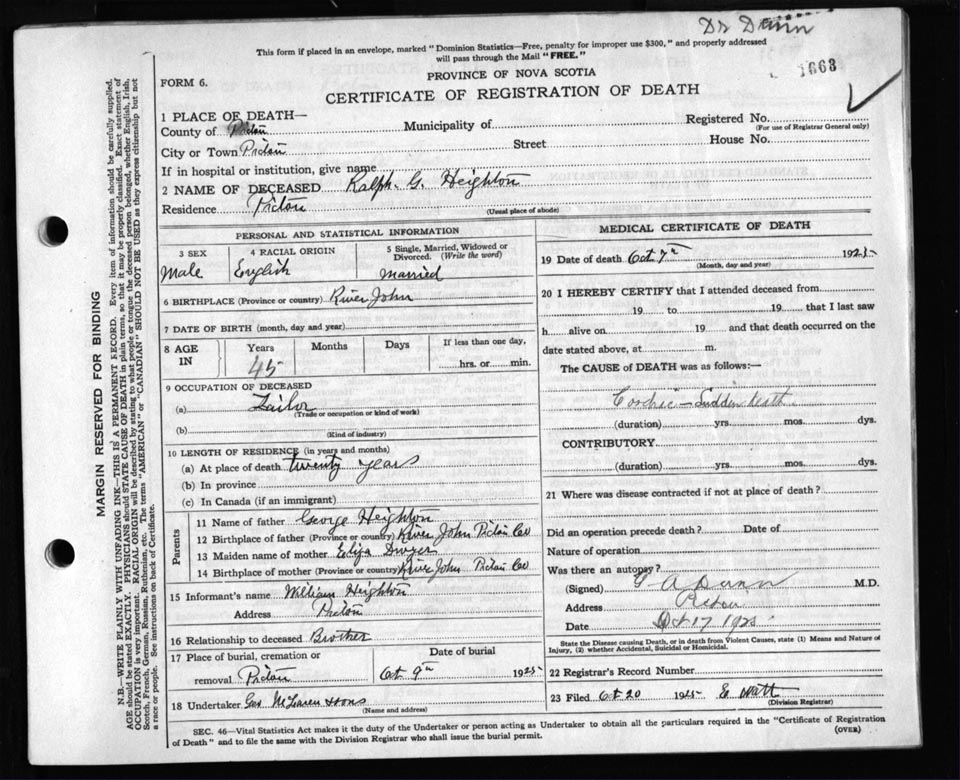 Dr Dunn
This form if placed in an envelope, marked "Dominion Statistics—Free, penalty for improper use $300," and properly addressed
will pass through the Mail "FREE."
1668
PROVINCE OF NOVA SCOTIA
FORM 6.
CERTIFICATE OF REGISTRATION OF DEATH
1 PLACE OF DEATH—
County of Pictou Municipality of Registered No.
(For use of Registrar General only)
City or Town Pictou Street House No.
If in hospital or institution, give name
2 NAME OF DECEASED Ralph. G. Heighton
Residence Pictou
(Usual place of abode)
PERSONAL AND STATISTICAL INFORMATION
3 SEX 4 RACIAL ORIGIN 5 Single, Married, Widowed or Divorced. (Write the word)
Male English Married
6 BIRTHPLACE (Province or country) River John
7 DATE OF BIRTH (month, day and year)
8 AGE IN Years Months Days If less than one day,
45 hrs. or min.
9 OCCUPATION OF DECEASED
(a) Tailor
(Trade or occupation or kind of work)
(b)
(Kind of industry)
10 LENGTH OF RESIDENCE (in years and months)
(a) At place of death twenty years
(b) In province
(c) In Canada (if an immigrant)
Parents
11 Name of father George Heighton
12 Birthplace of father (Province or country) River John Pictou Co
13 Maiden name of mother Eliza Dwyer
14 Birthplace of mother (Province or country) River John Pictou Co
15 Informant's name William Heighton
Address Pictou
16 Relationship to deceased Brother
17 Place of burial, cremation or removal Pictou
Date of burial
Oct 9th 1925
18 Undertaker Geo McLaren & Sons
(Name and address)
MEDICAL CERTIFICATE OF DEATH
19 Date of death Oct 7th 1925
(Month, day and year)
20 I HEREBY CERTIFY that I attended deceased from
19 to 19 that I last saw
h alive on 19 and that death occurred on
date stated above, at m.
The CAUSE of DEATH was as follows:—
Sudden death
(duration) yrs. mos. dys.
CONTRIBUTORY
(duration) yrs. mos. dys.
21 Where was disease contracted if not at place of death?
Did an operation precede death? Date of
Nature of operation
Was there an autopsy?
(Signed) A Dunn M.D.
Address Pictou
Date Oct 17 1925
State the Disease causing Death, or in death from Violent Causes, state (1) Means and Nature of
Injury, (2) whether Accidental, Suicidal or Homicidal.
22 Registrar's Record Number
23 Filed Oct 20 1925 Watt
(Division Registrar)
SEC. 46—Vital Statistics Act makes it the duty of the Undertaker or person acting as Undertaker to obtain all the particulars required in the "Certificate of Registration
of Death" and to file the same with the Division Registrar who shall issue the burial permit.
(OVER)
MARGIN RESERVED FOR BINDING
N.B.—WRITE PLAINLY WITH UNFADING INK—THIS IS A PERMANENT RECORD. Every item of information should be carefully supplied.
AGE should be stated EXACTLY. PHYSICIANS should STATE CAUSE OF DEATH in plain terms, so that it may be properly classified. Exact statement of
OCCUPATION is very important. RACIAL ORIGIN will be described by stating to what people or tongue the deceased person belonged, whether English, Irish,
Scotch, French, German, Russian, Ruthenian, etc. The terms "AMERICAN" or "CANADIAN" SHOULD NOT BE USED as they express citizenship but not
a race or people. See instructions on back of Certificate.